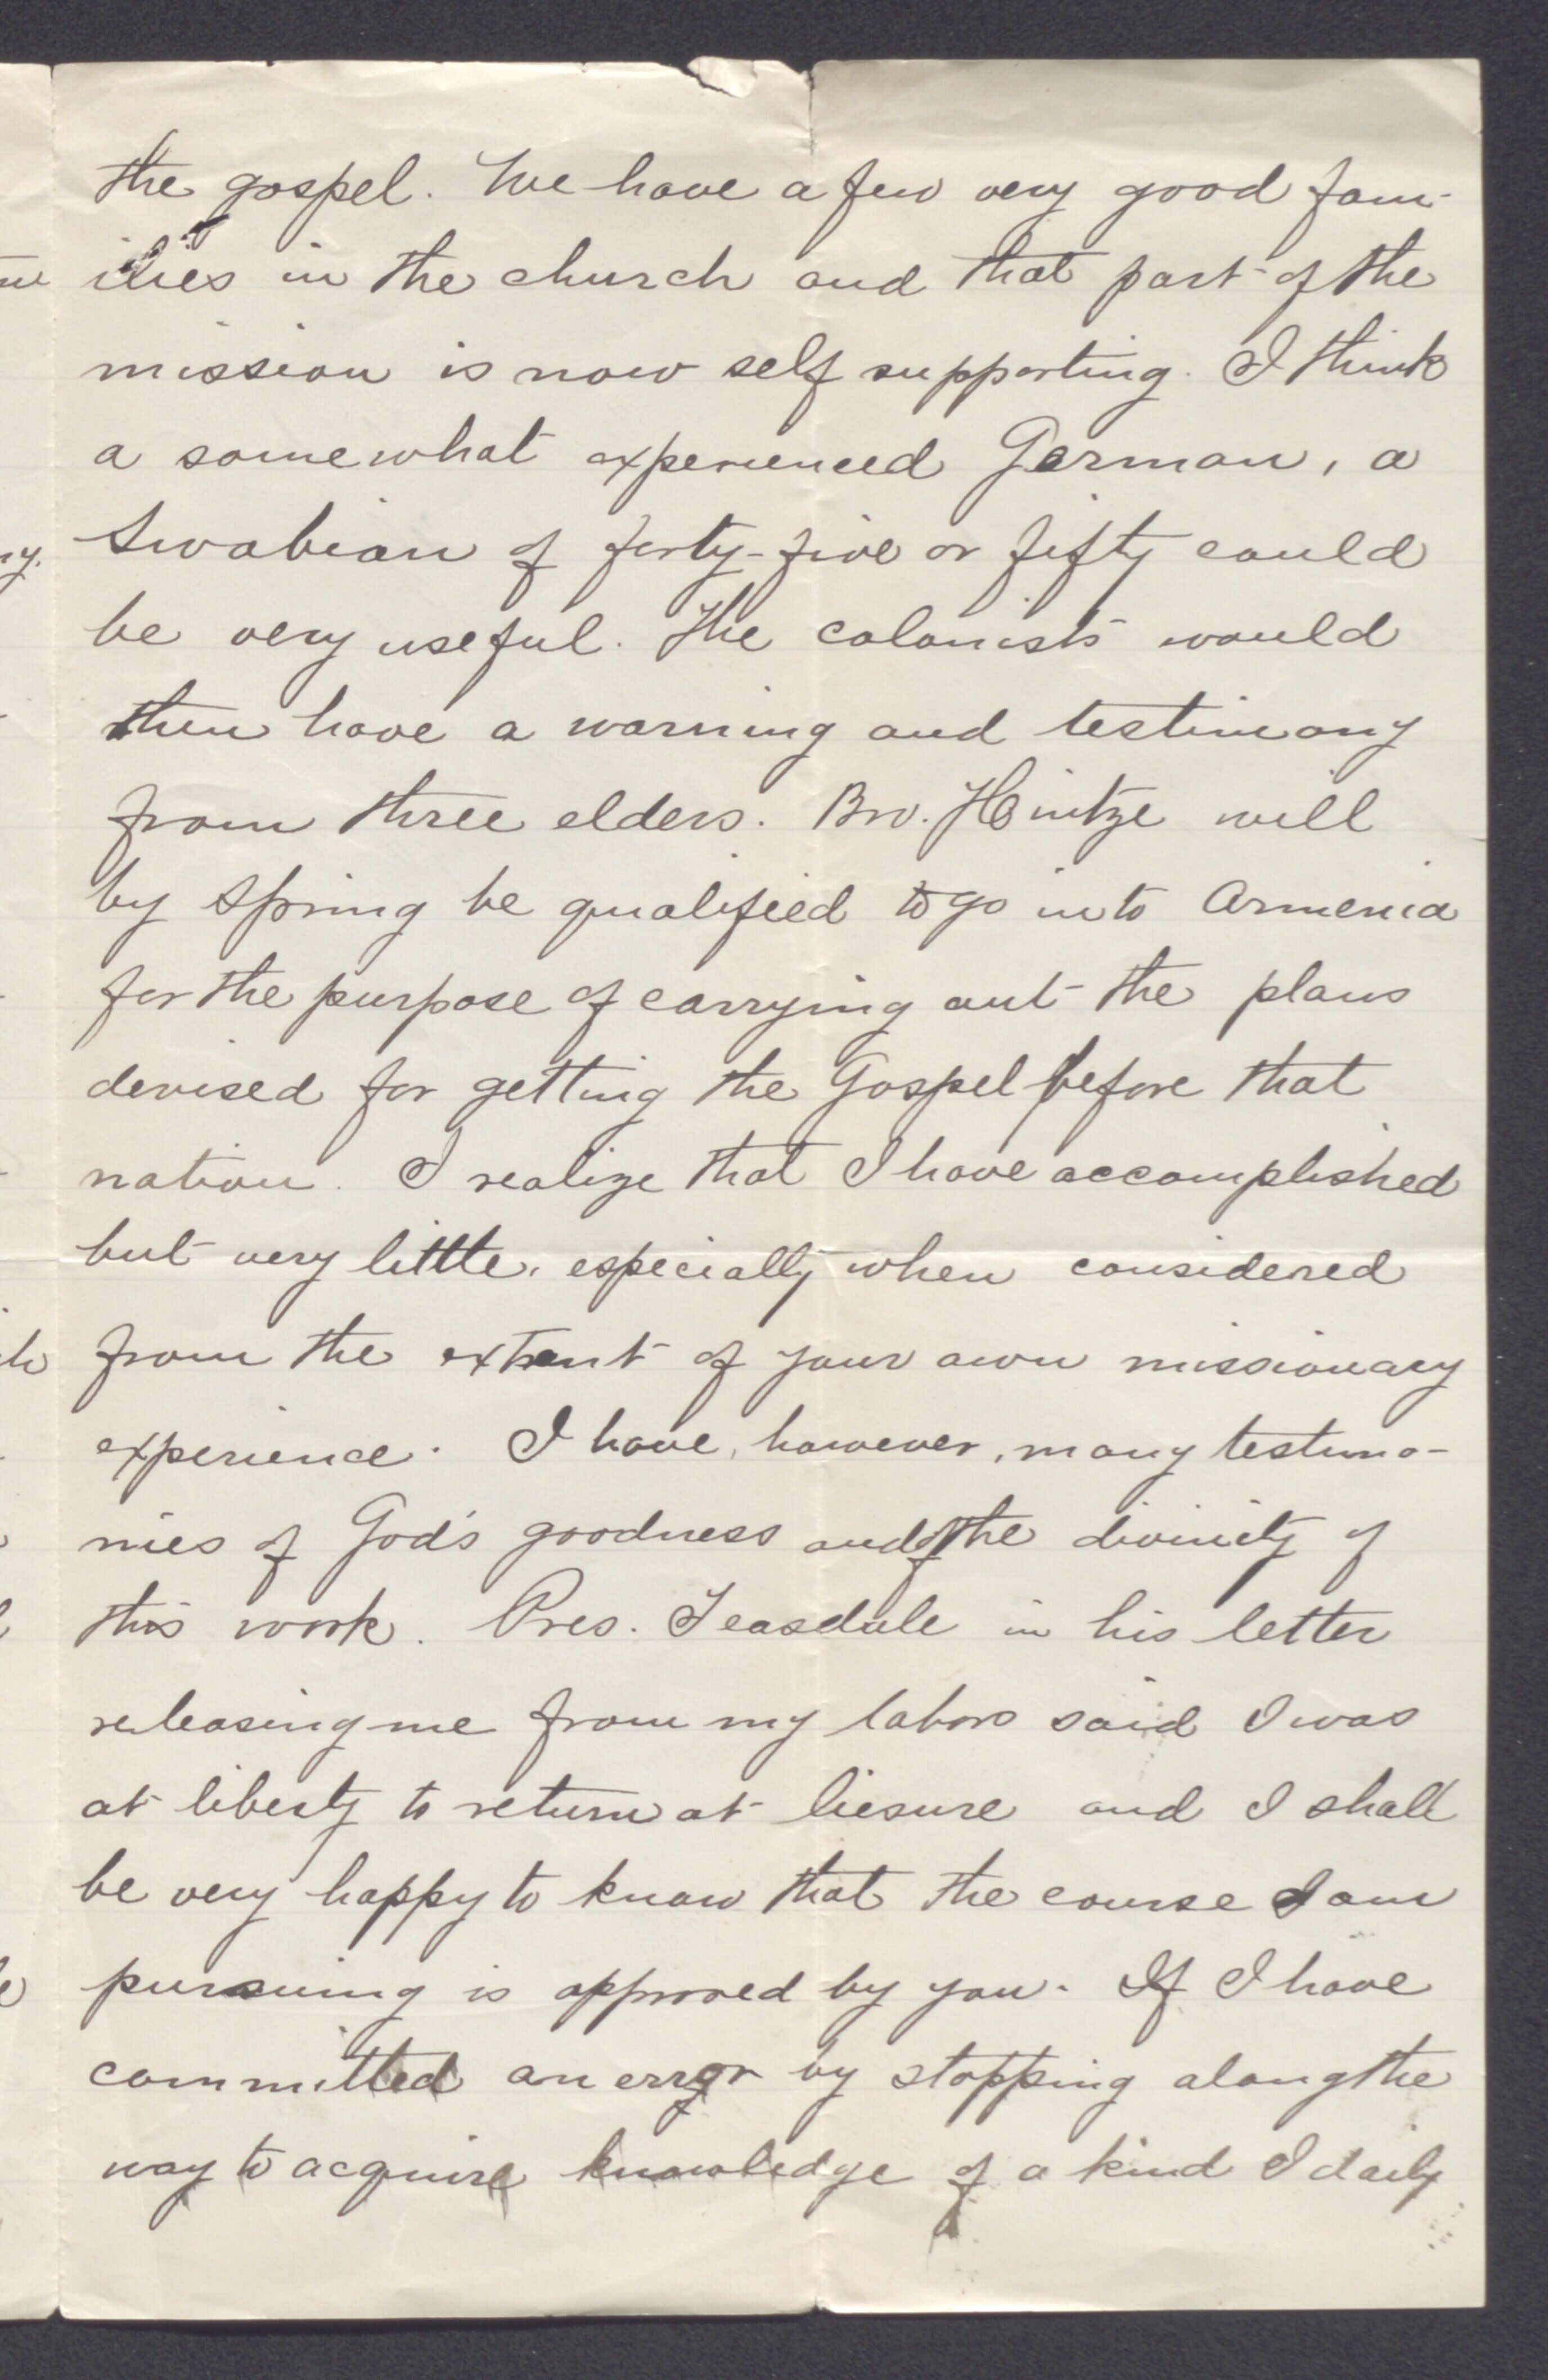 the gospel. We have a few very good fam-
ilies in the church and that part of the
mission is now self supporting. I think
a somewhat experienced German, a
Swabian of forty-five or fifty could
be very useful. The colonists would
then have a warning and testimony
from three elders. Bro. Hintze will
by Spring be qualified to go into Armenia
for the purpose of carrying out the plans
devised for getting the Gospel before that
nation. I realize that I have accomplished
but very little, especially when considered
from the extent of your own missionary
experience. I have, however, many testimo-
nies of God's goodness and of the divinity of
this work. Pres. Teasdale in his letter
releasing me from my labors said I was
at liberty to return at liesure and I shall
be very happy to know that the course I am
pursuing is approved by you. If I have
committed an error by stopping along the
way to acquire knowledge of a kind I daily